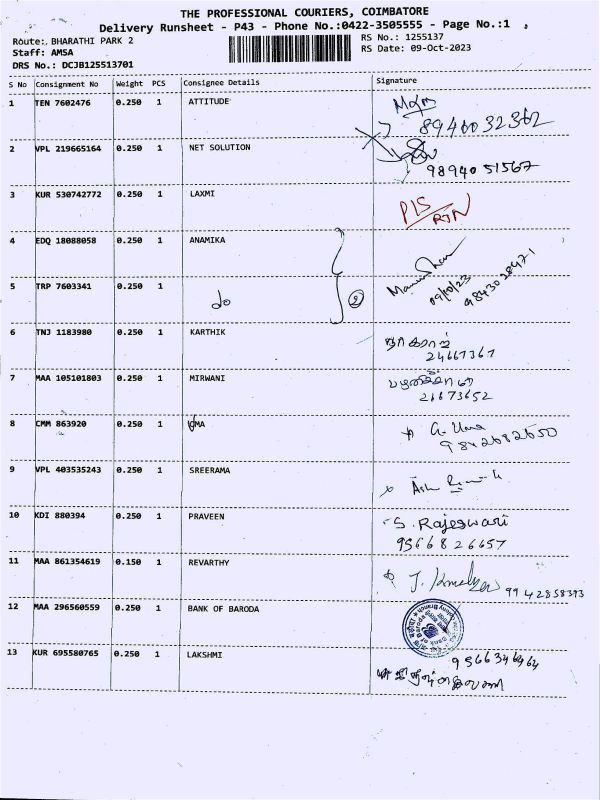 THE PROFESSIONAL COURIERS, COIMBATORE
Delivery Runsheet - P43 - Phone No.:0422-3505555 - Page No.:1
Route: BHARATHI PARK 2
RS No.: 1255137
Staff: AMSA
RS Date: 09-Oct-2023
DRS No.: DCJB125513701
S No Consignment No Weight PCS Consignee Details Signature
1 TEN 7602476 0.250 1 ATTITUDE
8940032362
2 VPL 219665164 0.250 1 NET SOLUTION
9894051567
3 KUR 530742772 0.250 1 LAXMI
RTN
4 EDQ 18088058 0.250 1 ANAMIKA
5 TRP 7603341 0.250 1 do 2
09/10/23
9843028471
6 TNJ 1183980 0.250 1 KARTHIK
நாகராஜ்
24667367
7 MAA 105101803 0.250 1 MIRWANI
21673652
8 CMM 863920 0.250 1 UMA G. Uma
9842682650
9 VPL 403535243 0.250 1 SREERAMA
10 KDI 880394 0.250 1 PRAVEEN S. Rajeswari
9566826657
11 MAA 861354619 0.150 1 REVARTHY
9942858393
12 MAA 296560559 0.250 1 BANK OF BARODA
Bank of Baroda
13 KUR 695580765 0.250 1 LAKSHMI
9566346464